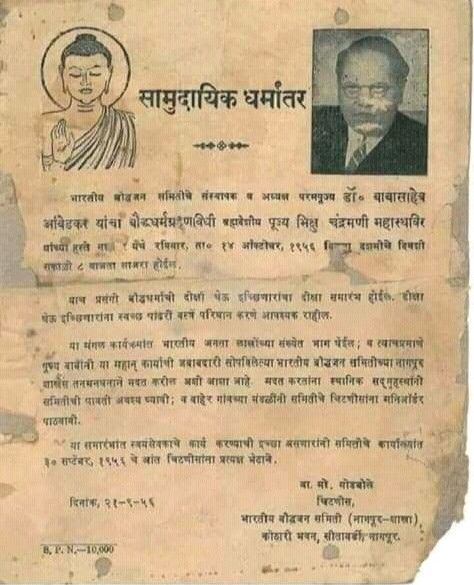 सामुदायिक धर्मांतर
भारतीय बौद्धजन समितीचे संस्थापक व अध्यक्ष परमपूज्य डॉ० बाबासाहेब
आंबेडकर यांचा बौद्धधर्मग्रहणविधी ब्रह्मदेशीय पूज्य भिक्षु चंद्रमणी महास्थविर
यांच्या हस्ते येथे रविवार, ता० १४ ऑक्टोबर, १९५६ दशमीचे दिवशी
सकाळी ८ वाजता साजरा होईल.
याच प्रसंगी बौद्धधर्माची दीक्षा घेऊ इच्छिणारांचा दीक्षा समारंभ होईल. दीक्षा
घेऊ इच्छिणारांना स्वच्छ पांढरीं वस्त्रें परिधान करणे आवश्यक राहील.
या मंगल कार्यक्रमांत भारतीय जनता लाखोंच्या संख्येत भाग घेईल; व त्याचप्रमाणे
पूज्य बाबांनी या महान् कार्याची जबाबदारी सोपविलेल्या भारतीय बौद्धजन समितीच्या नागपूर
शाखेस तनमनधनाने मदत करील अशी आशा आहे. मदत करतांना स्थानिक सद्गृहस्थांनी
समितीची पावती अवश्य घ्यावी; व बाहेर गांवच्या मंडळींनी समितीचे चिटणीसांना मनिऑर्डर
पाठवावी.
या समारंभांत स्वयंसेवकाचे कार्य करण्याची इच्छा असणारांनी समितीचे कार्यालयांत
३० सप्टेंबर, १९५६ चे आंत चिटणीसांना प्रत्यक्ष भेटावे.
दिनांक, २१-९-५६
वा. मो. गोडबोले
चिटणीस,
भारतीय बौद्धजन समिती (नागपूर-शाखा)
कोठारी भवन, सीताबर्डी, नागपूर.
B. P. N.—10,000